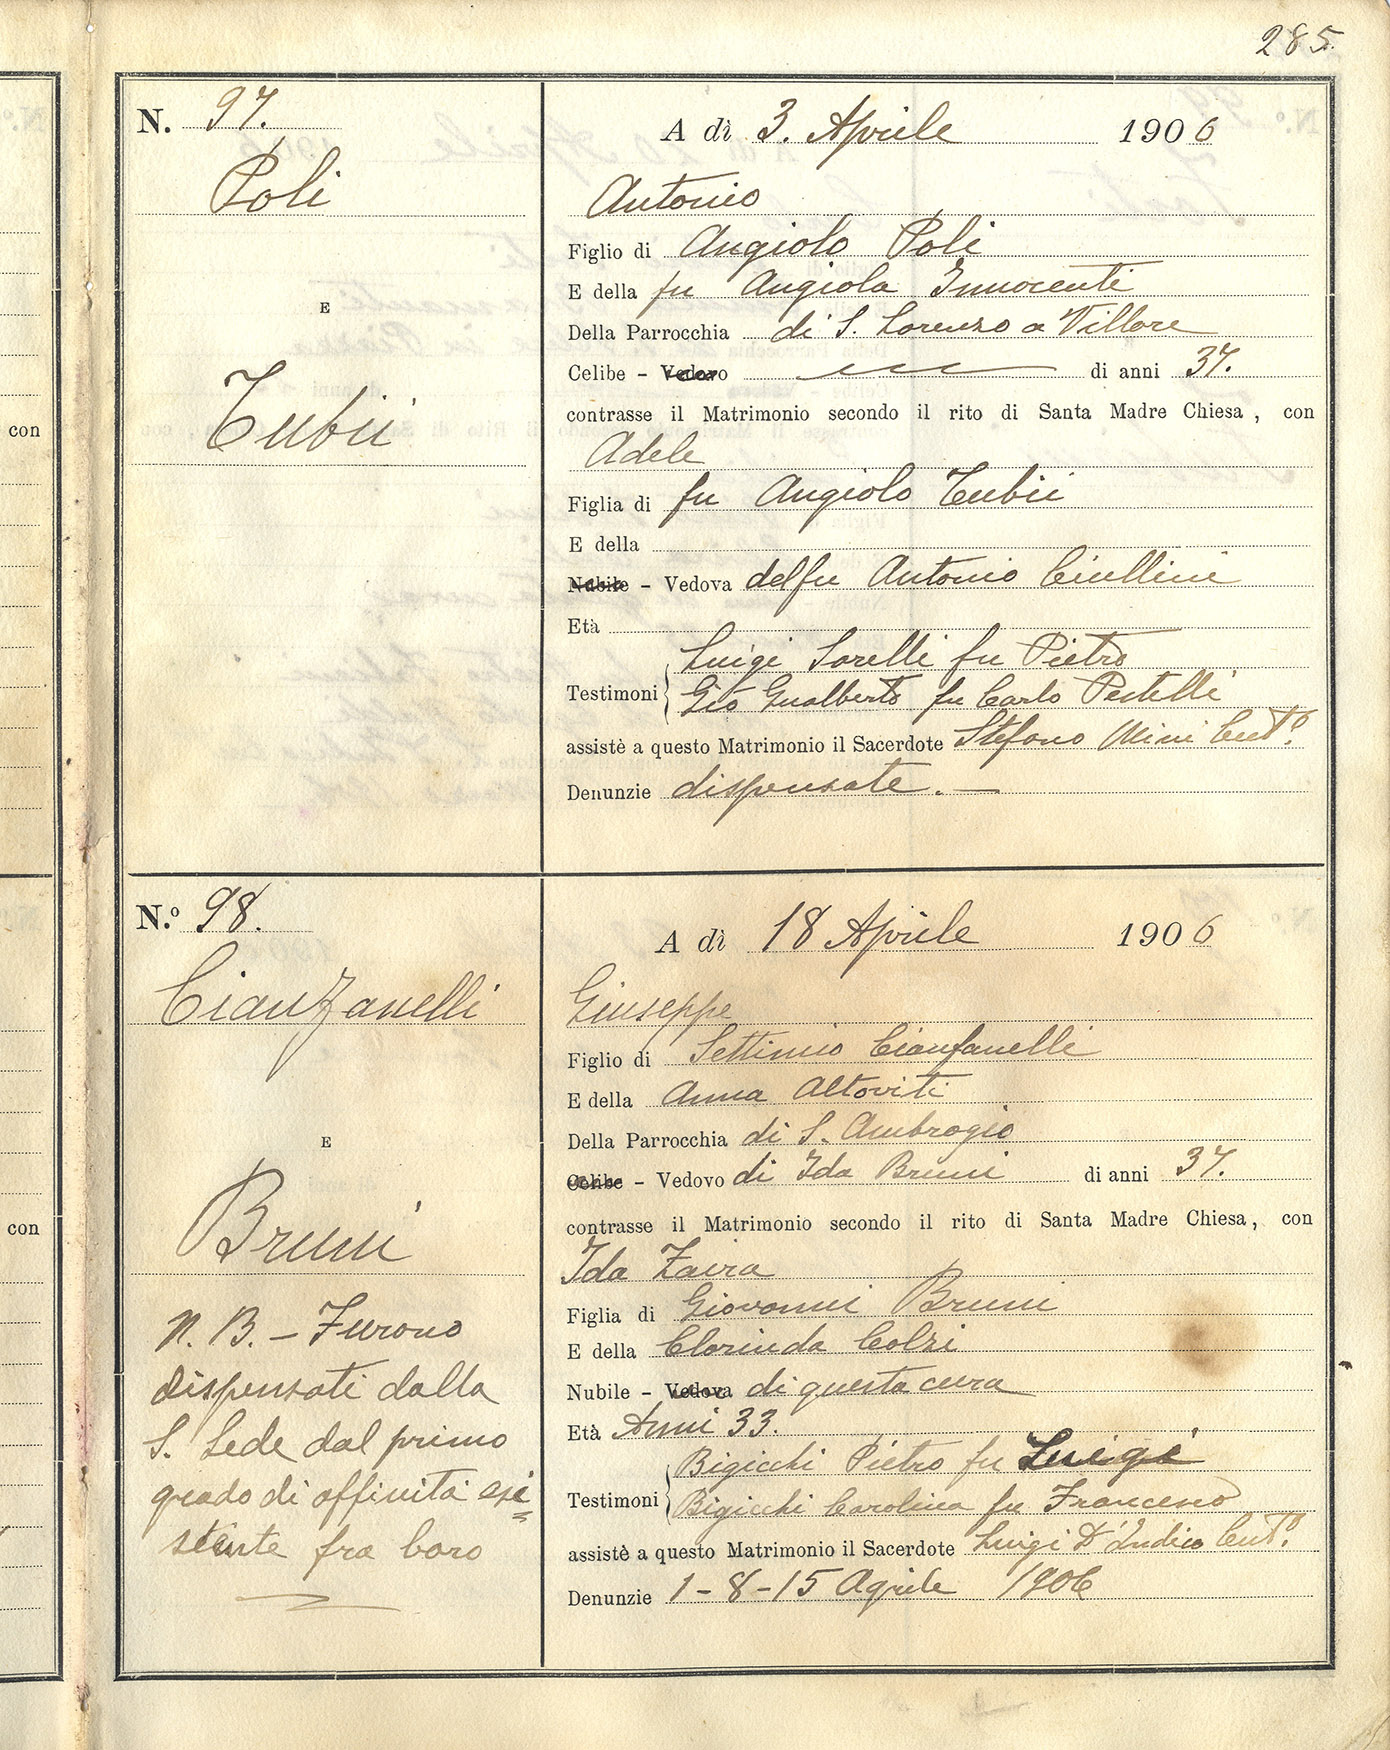 285.
N. 97.
Poli
E
Tubii
A dì 3. Aprile 1906
Antonio
Figlio di Angiolo Poli
E della fu Angiola Innocenti
Della Parrocchia di S. Lorenzo a Villore
Celibe - Vedovo di anni 37.
contrasse il Matrimonio secondo il rito di Santa Madre Chiesa, con
Adele
Figlia di fu Angiolo Tubii
E della
Nubile - Vedova del fu Antonio Ciullini
Età
Luigi Sorelli fu Pietro
Testimoni
Gio Gualberto fu Carlo Pestelli
assistè a questo Matrimonio il Sacerdote Stefano Mini Curt.º
Denunzie dispensate. —
N.º 98.
Cianfanelli
E
Bruni
N. B. - Furono
dispensati dalla
S. Sede dal primo
grado di affinità esi
stente fra loro
A dì 18 Aprile 1906
Giuseppe
Figlio di Settimio Cianfanelli
E della Anna Altoviti
Della Parrocchia di S. Ambrogio
Celibe - Vedovo di Ida Bruni di anni 37.
contrasse il Matrimonio secondo il rito di Santa Madre Chiesa, con
Ida Zaira
Figlia di Giovanni Bruni
E della Clorinda Colzi
Nubile - Vedova di questa cura
Età Anni 33.
Bigicchi Pietro fu Luigi
Testimoni
Bigicchi Carolina fu Francesco
assistè a questo Matrimonio il Sacerdote Luigi D'Indico Curt.º
Denunzie 1-8-15 Aprile 1906
con
con